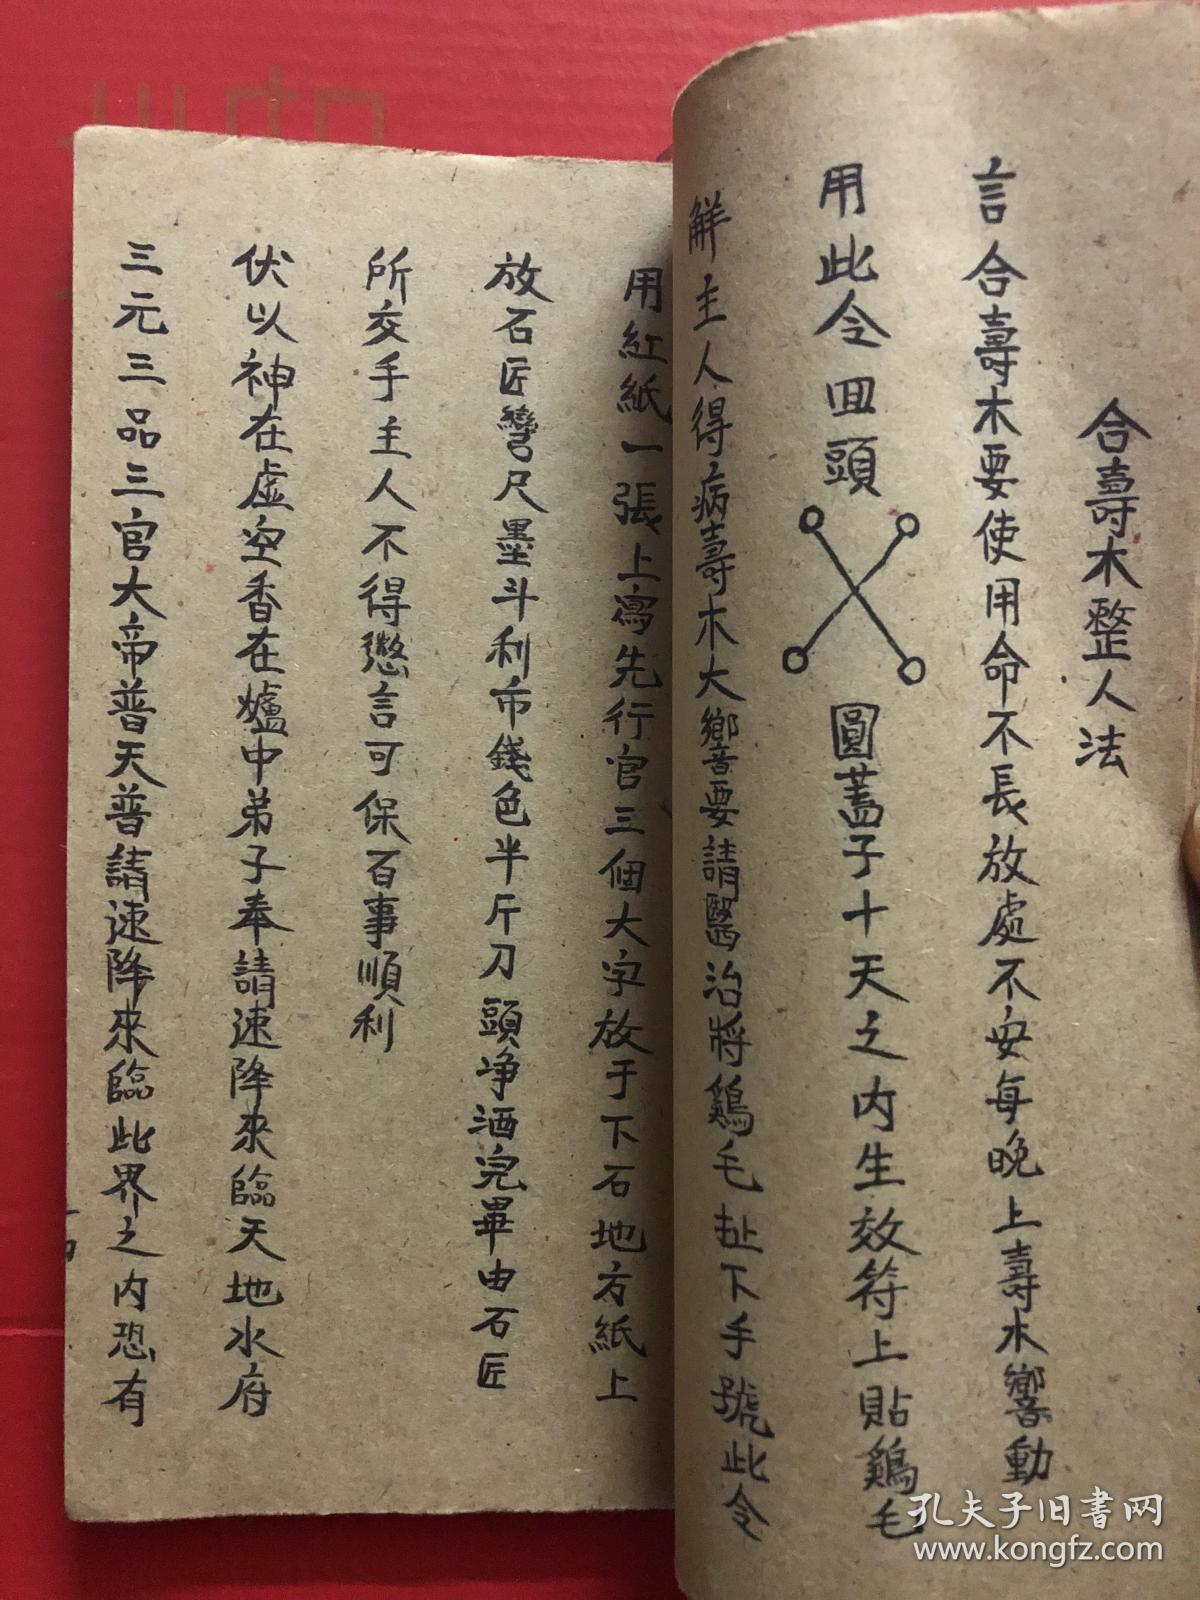 合壽木整人法
言合壽木要使用命不長放處不安每晚上壽木響動
用此令回頭
圓蓋子十天之内生效符上貼鷄毛
解主人得病壽木大響要請醫治將鷄毛扯下手號此令
用紅紙一張上寫先行官三個大字放于下石地方紙上
放石匠彎尺墨斗利市錢色半斤刀頭净酒完畢由石匠
所交手主人不得憊言可保百事順利
伏以神在虚空香在爐中弟子奉請速降來臨天地水府
三元三品三官大帝普天普請速降來臨此界之内恐有
孔夫子旧书网
www.kongfz.com